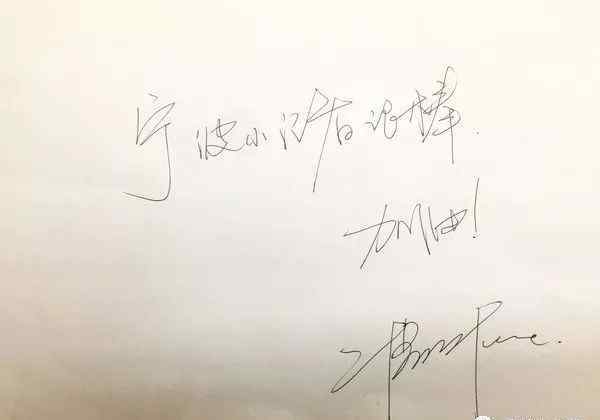 宁波小记者很棒.
加油!